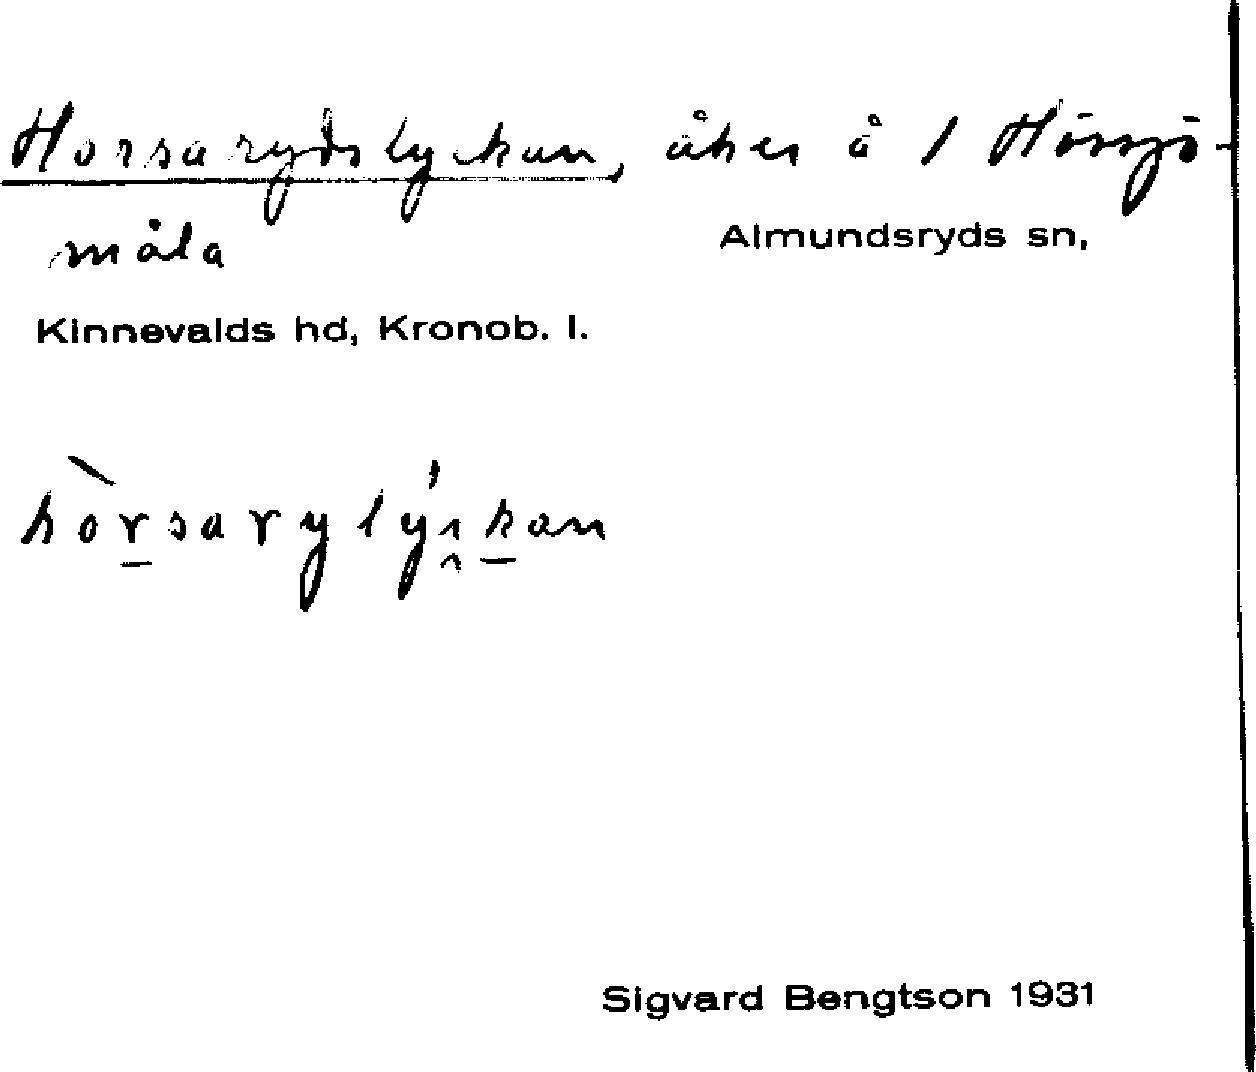 Horsarydslyckan, åker å 1 Hörsjö-
måla
Almundsryds sn,
Kinnevalds hd, Kronob. l.
Sigvard Bengtson 1931